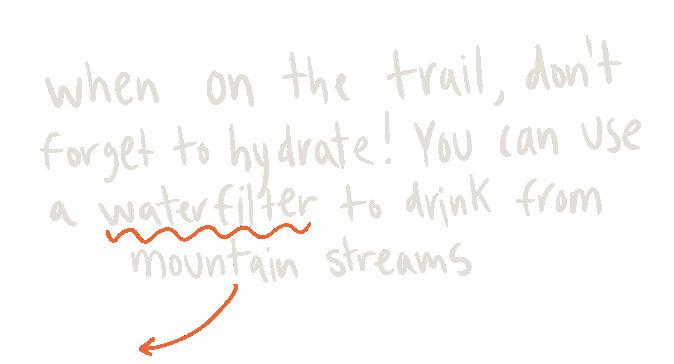 when on the trail, don't
forget to hydrate! You can use
a waterfilter to drink from
mountain streams